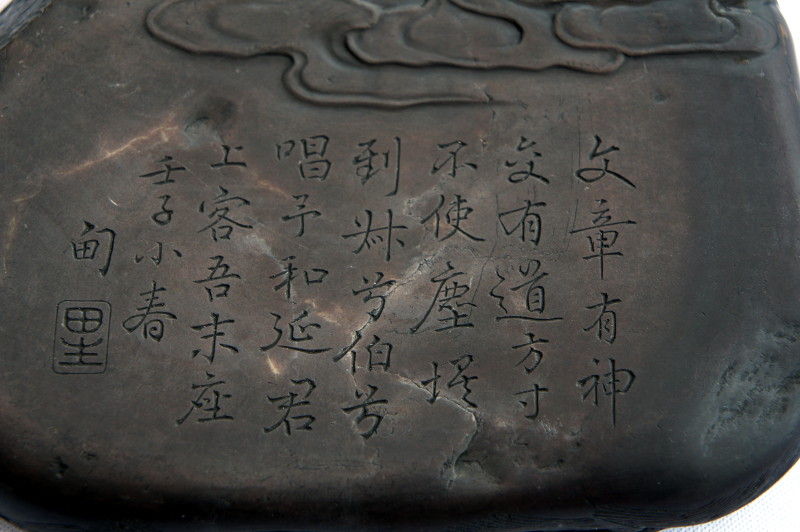 文章有神
交有道方寸
不使塵埃
到叔兮伯兮
唱予和延君
上客吾末座
壬子小春
甸
里